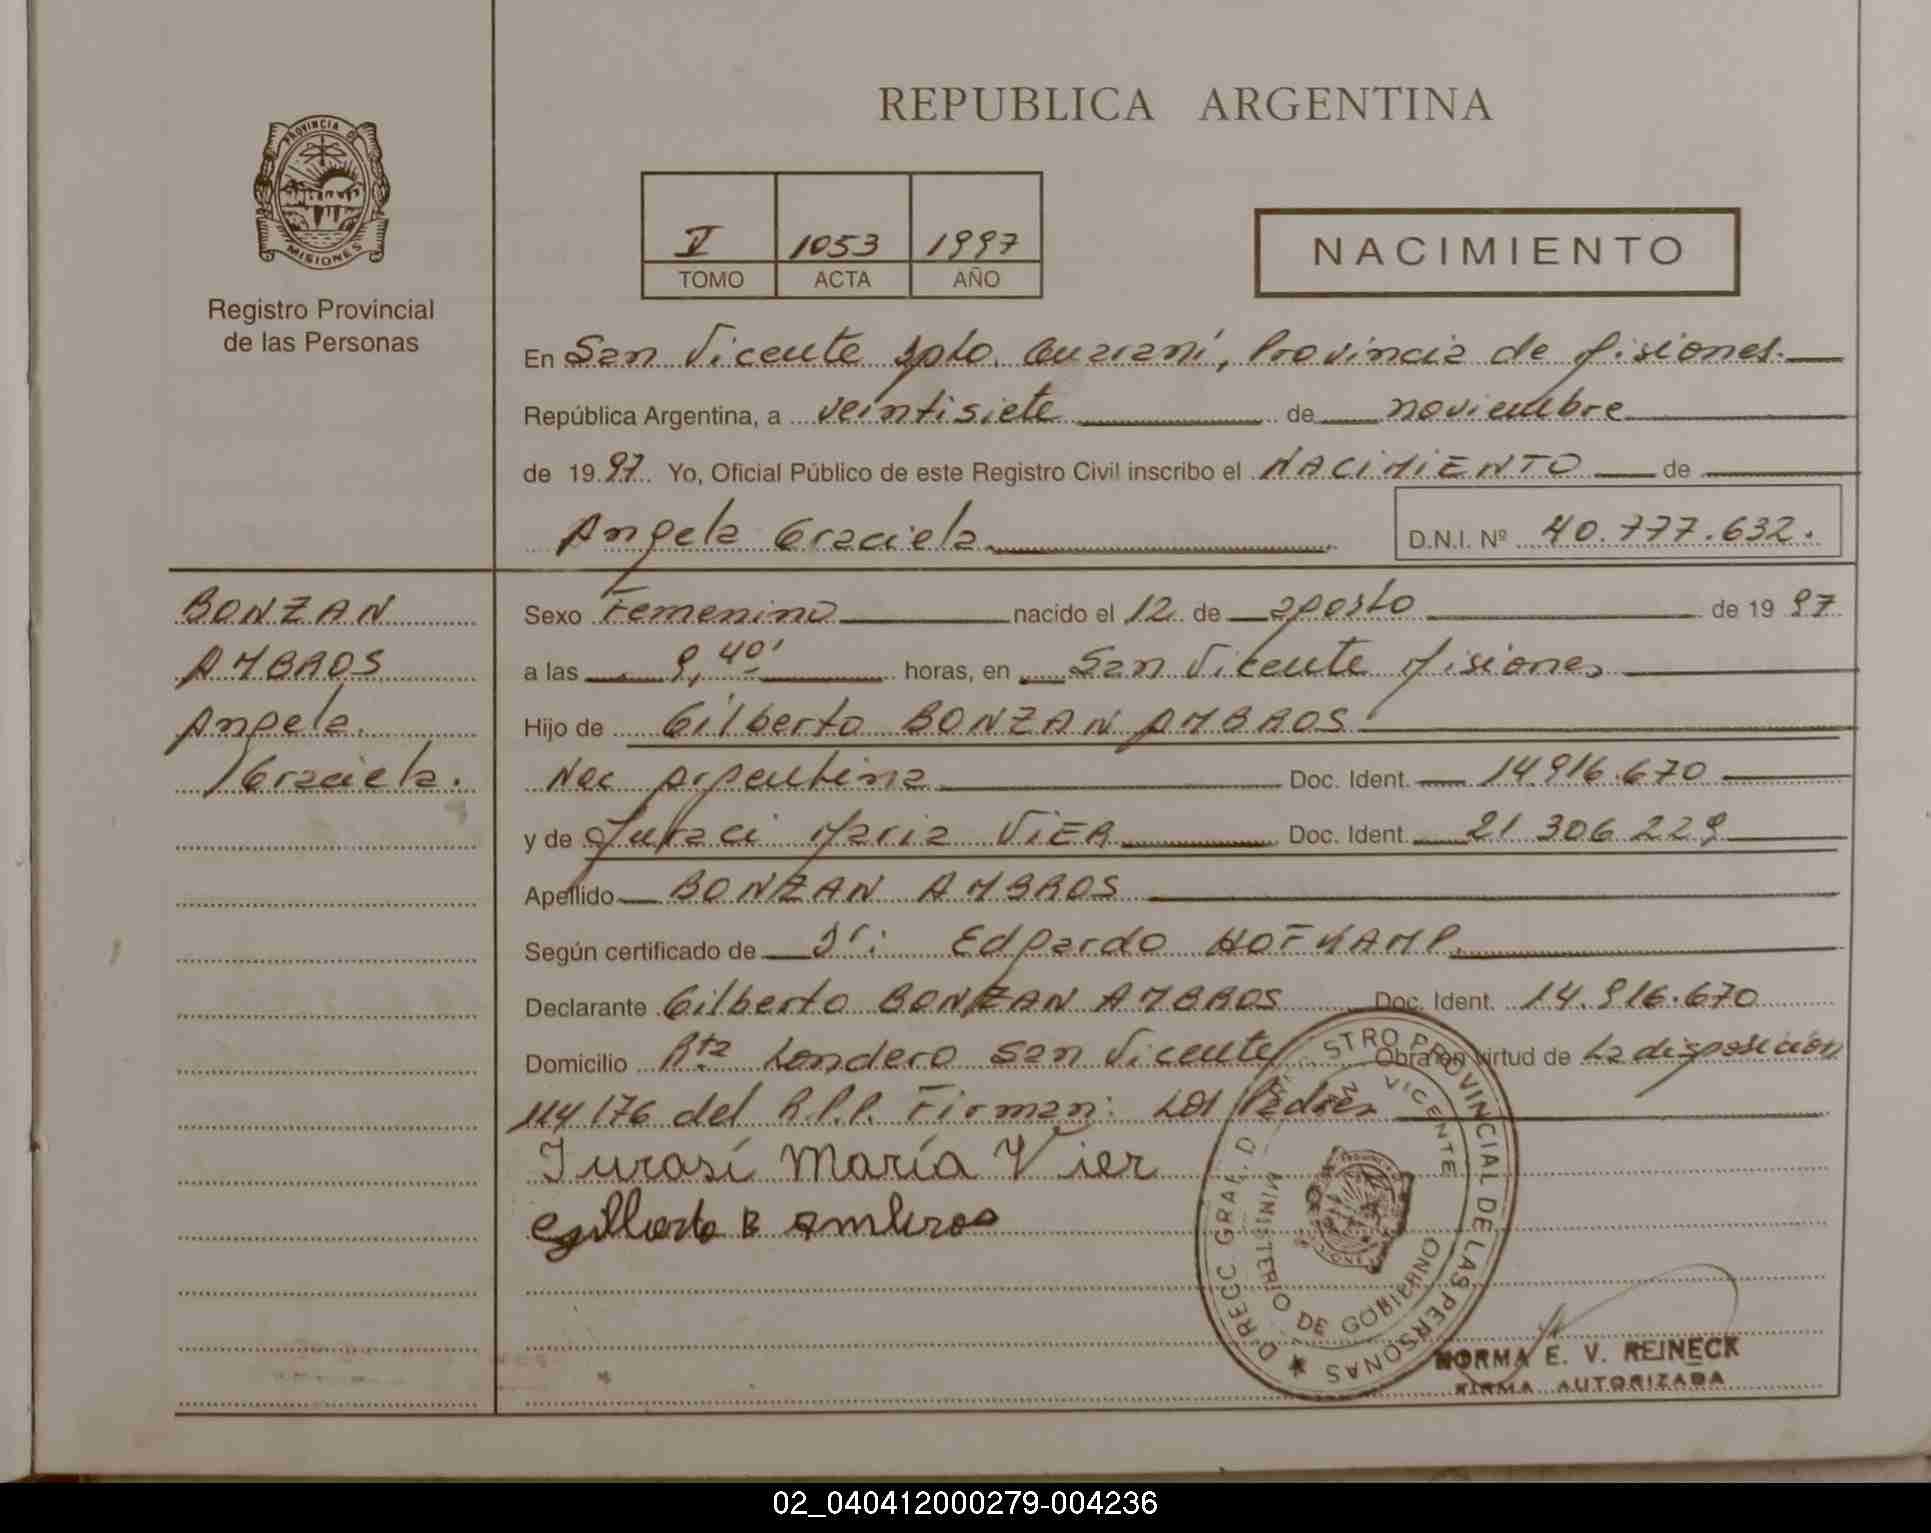 REPUBLICA ARGENTINA
PROVINCIA DE
MISIONES
Registro Provincial
de las Personas
V 1053 1997
TOMO ACTA AÑO
NACIMIENTO
En San Vicente Dpto. Guaraní, Provincia de Misiones.
República Argentina, a veintisiete de noviembre
de 1997. Yo, Oficial Público de este Registro Civil inscribo el NACIMIENTO de
Angela Graciela
D.N.I. Nº 40.777.632.
BONZAN
AMBROS
Angela
Graciela.
Sexo Femenino nacido el 12 de agosto de 1997
a las 9,40' horas, en San Vicente Misiones
Hijo de Gilberto BONZAN AMBROS
Nac Argentina Doc. Ident. 14.916.670
y de Juraci Maria VIER Doc. Ident. 21 306 229
Apellido BONZAN AMBROS
Según certificado de Dr: Edgardo HOFKAMP.
Declarante Gilberto BONZAN AMBROS Doc. Ident. 14.916.670
Domicilio Rta Londero San Vicente Obra en virtud de La disposición
114/176 del R.P.P. Firman: Los Padres
Jurasí María Vier
Gilberto B Ambros
PROVINCIAL DE LAS PERSONAS
VICENTE
MINISTERIO DE GOBIERNO
NORMA E. V. REINECK
FIRMA AUTORIZADA
02_040412000279-004236